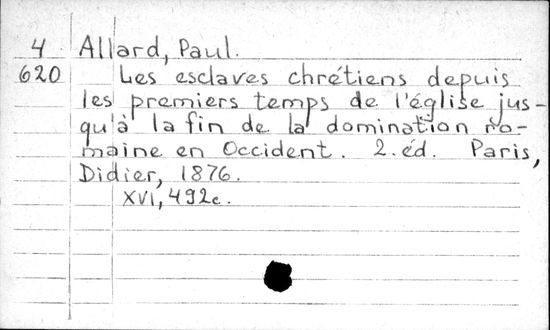 4 Allard, Paul.
620 Les esclaves chrétiens depuis
les premiers temps de l'église jus-
qu'à la fin de la domination ro-
maine en Occident. 2.éd. Paris,
Didier, 1876.
XVI, 492c.